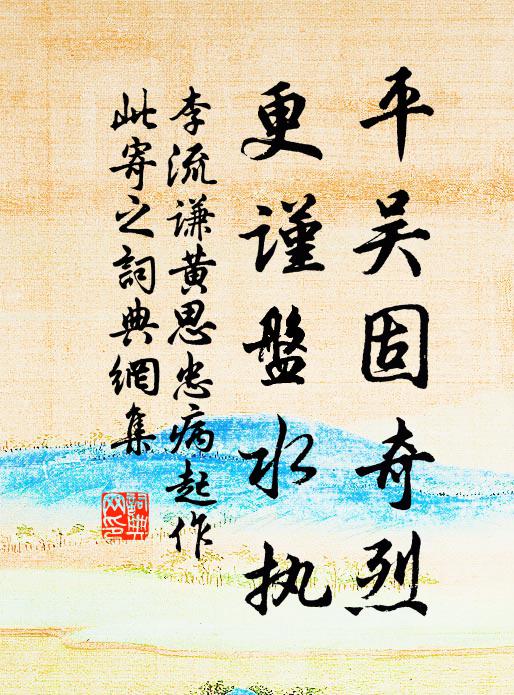 平吴固奇烈
更謹盤水执
李流谦黄思忠病起作
此寄之詞典網集
詞典网印